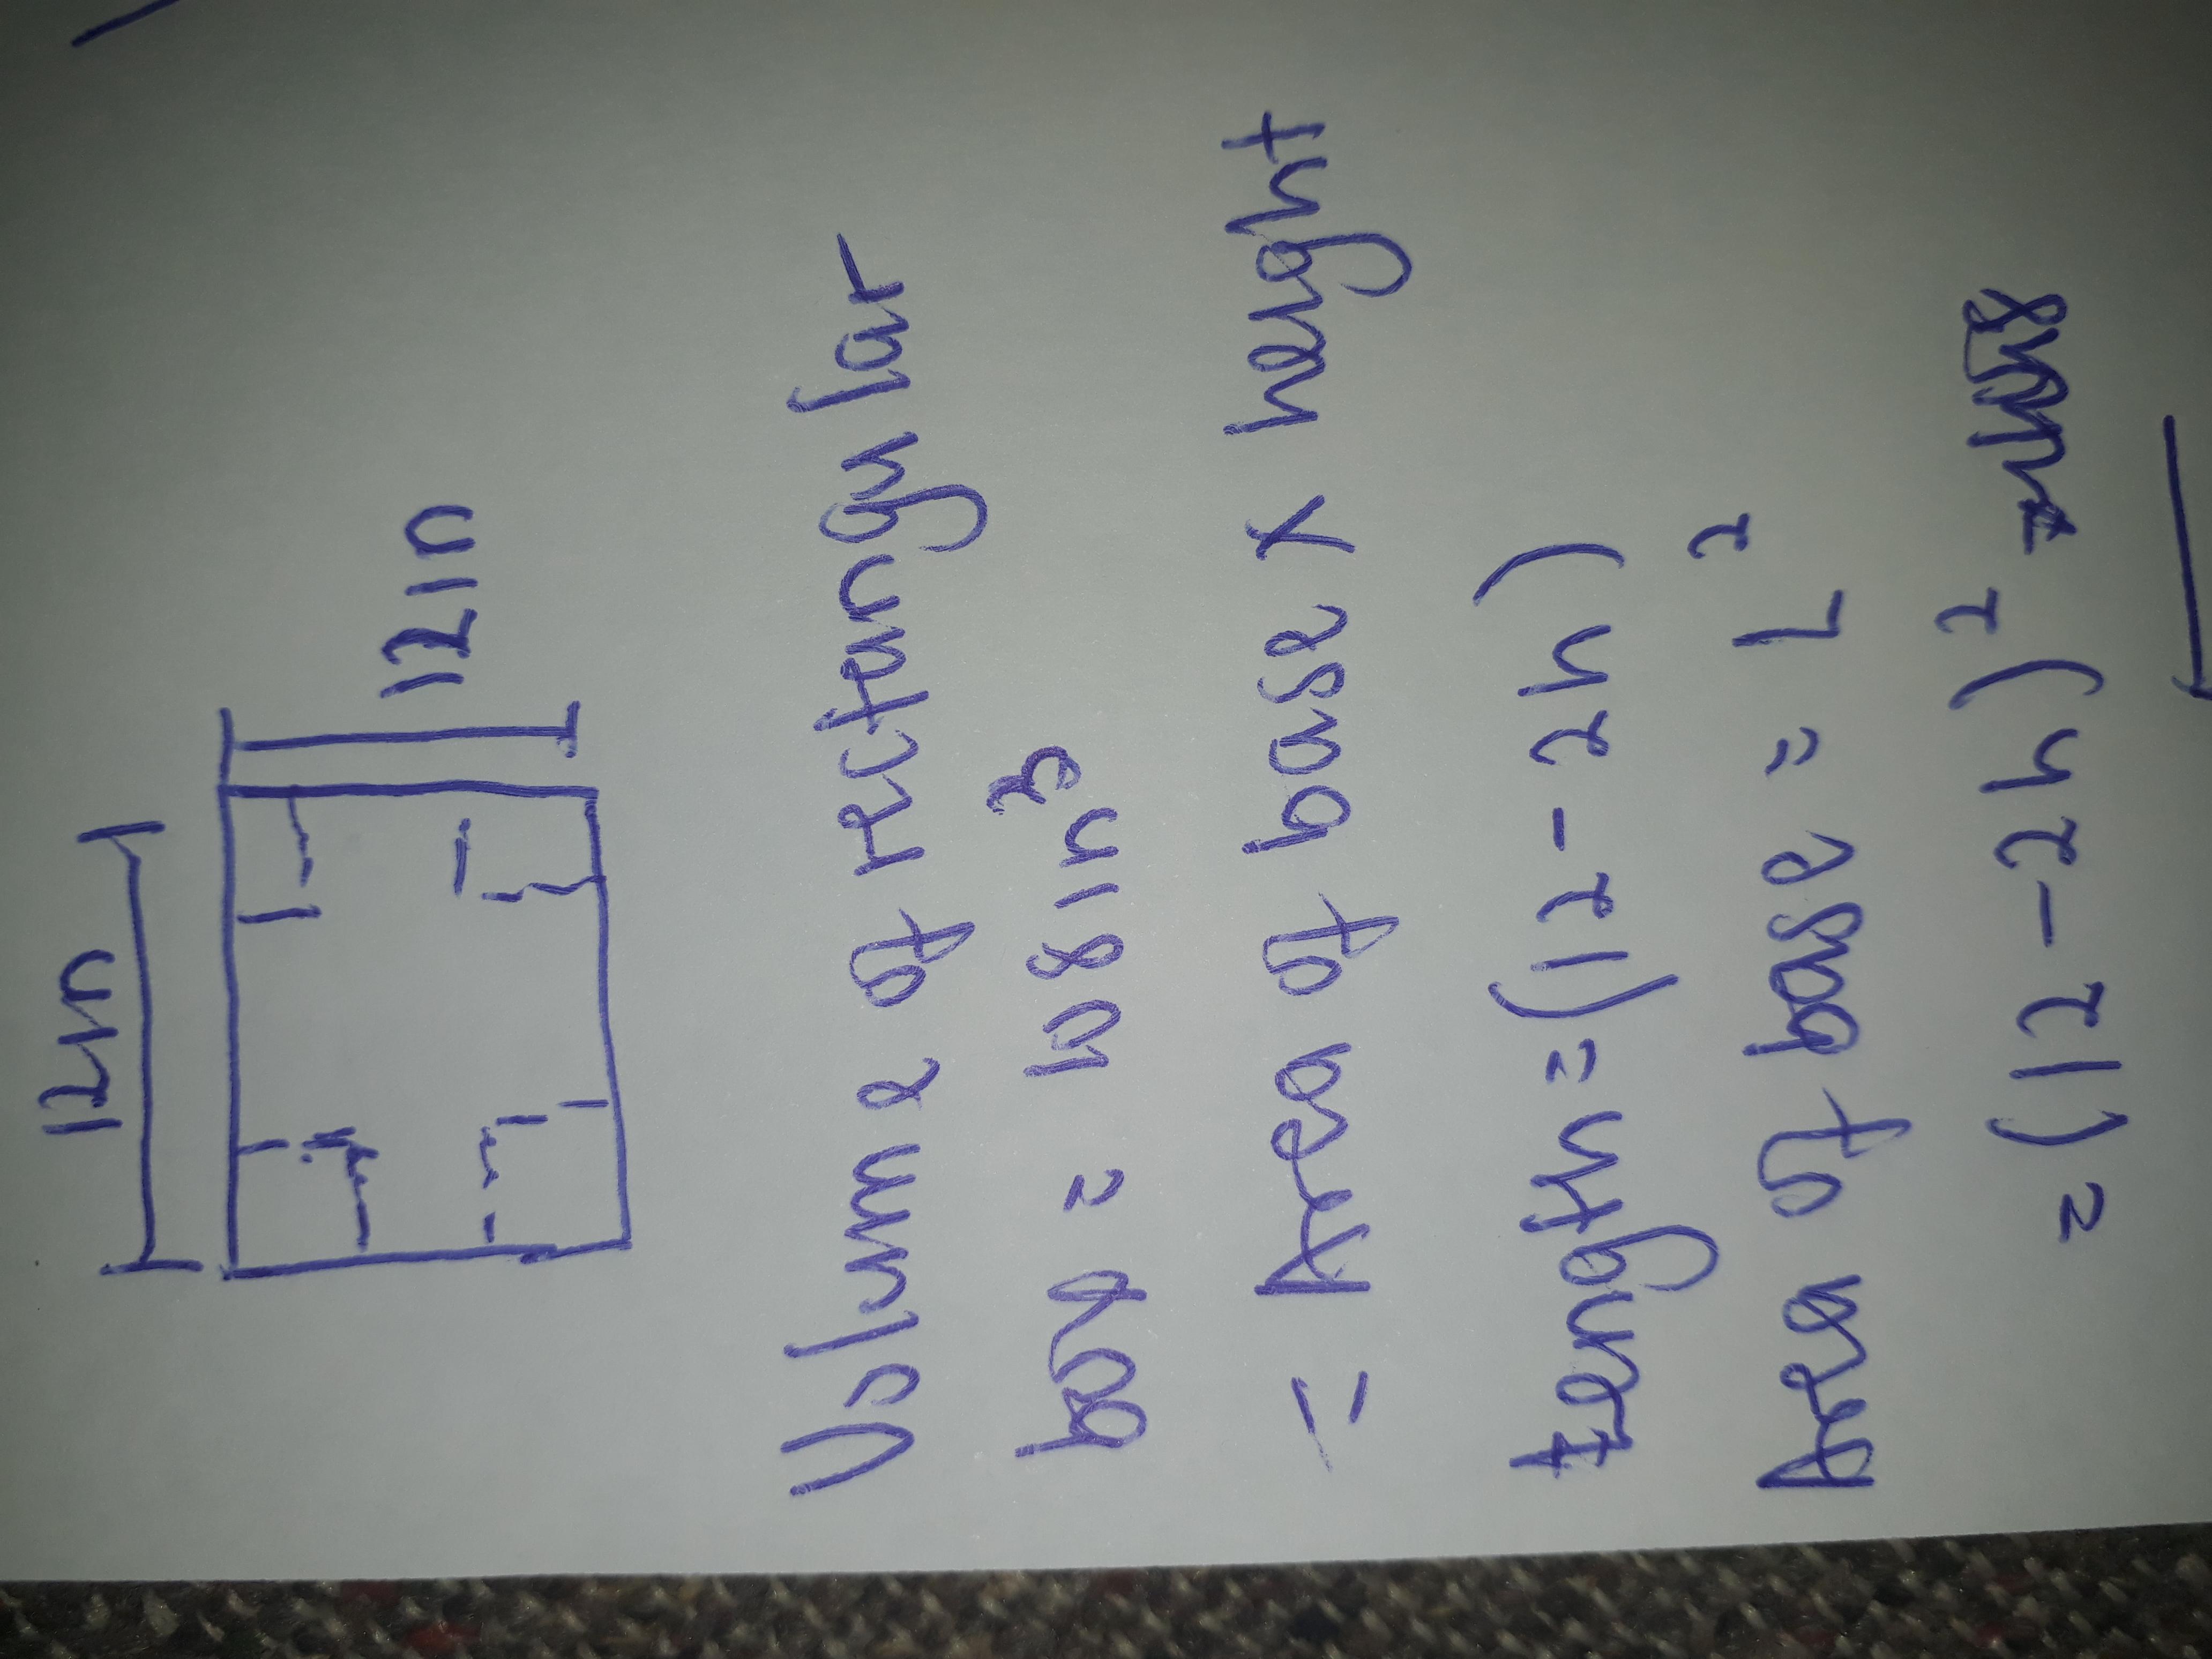 12in
12in
Volume of rectangular
box = 108in³
= Area of base x height
Length = (12 - 2h)
Area of base = L²
= (12 - 2h)²